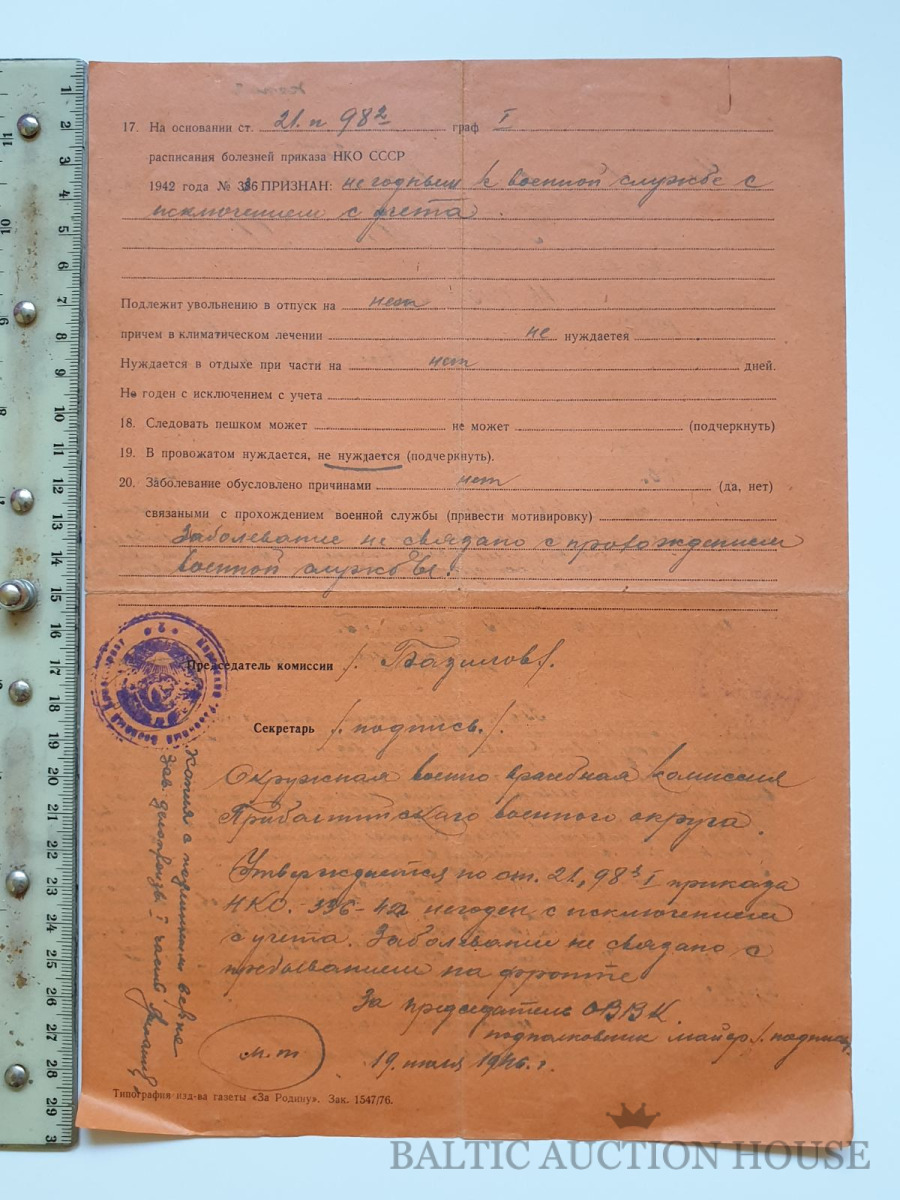 17. На основании ст. 21. и 98² граф I
расписания болезней приказа НКО СССР
1942 года № 336 ПРИЗНАН: не годным к военной службе с
исключением с учета.
Подлежит увольнению в отпуск на нет
причем в климатическом лечении не нуждается
Нуждается в отдыхе при части на нет дней.
Не годен с исключением с учета
18. Следовать пешком может не может (подчеркнуть)
19. В провожатом нуждается, не нуждается (подчеркнуть).
20. Заболевание обусловлено причинами нет (да, нет)
связаными с прохождением военной службы (привести мотивировку)
Заболевание не связано с прохождением
военной службы.
Председатель комиссии /. Базилов /.
Секретарь /. подпись. /.
Окружная военно врачебная комиссия
Прибалтийского военного округа.
Утверждается по ст. 21, 98 I приказа
НКО. 336-42 негоден с исключением
с учета. Заболевание не связано с
пребыванием на фронте
За председатель ОВВК
подполковник майер /. подпись
19 июля 1946 г.
м.п
Копия с подлинным верна
зав. I части
Типография изд-ва газеты «За Родину». Зак. 1547/76.
BALTIC AUCTION HOUSE
1
2
3
4
5
6
7
8
9
10
11
12
13
14
15
16
17
18
19
20
21
22
23
24
25
26
27
28
29
3